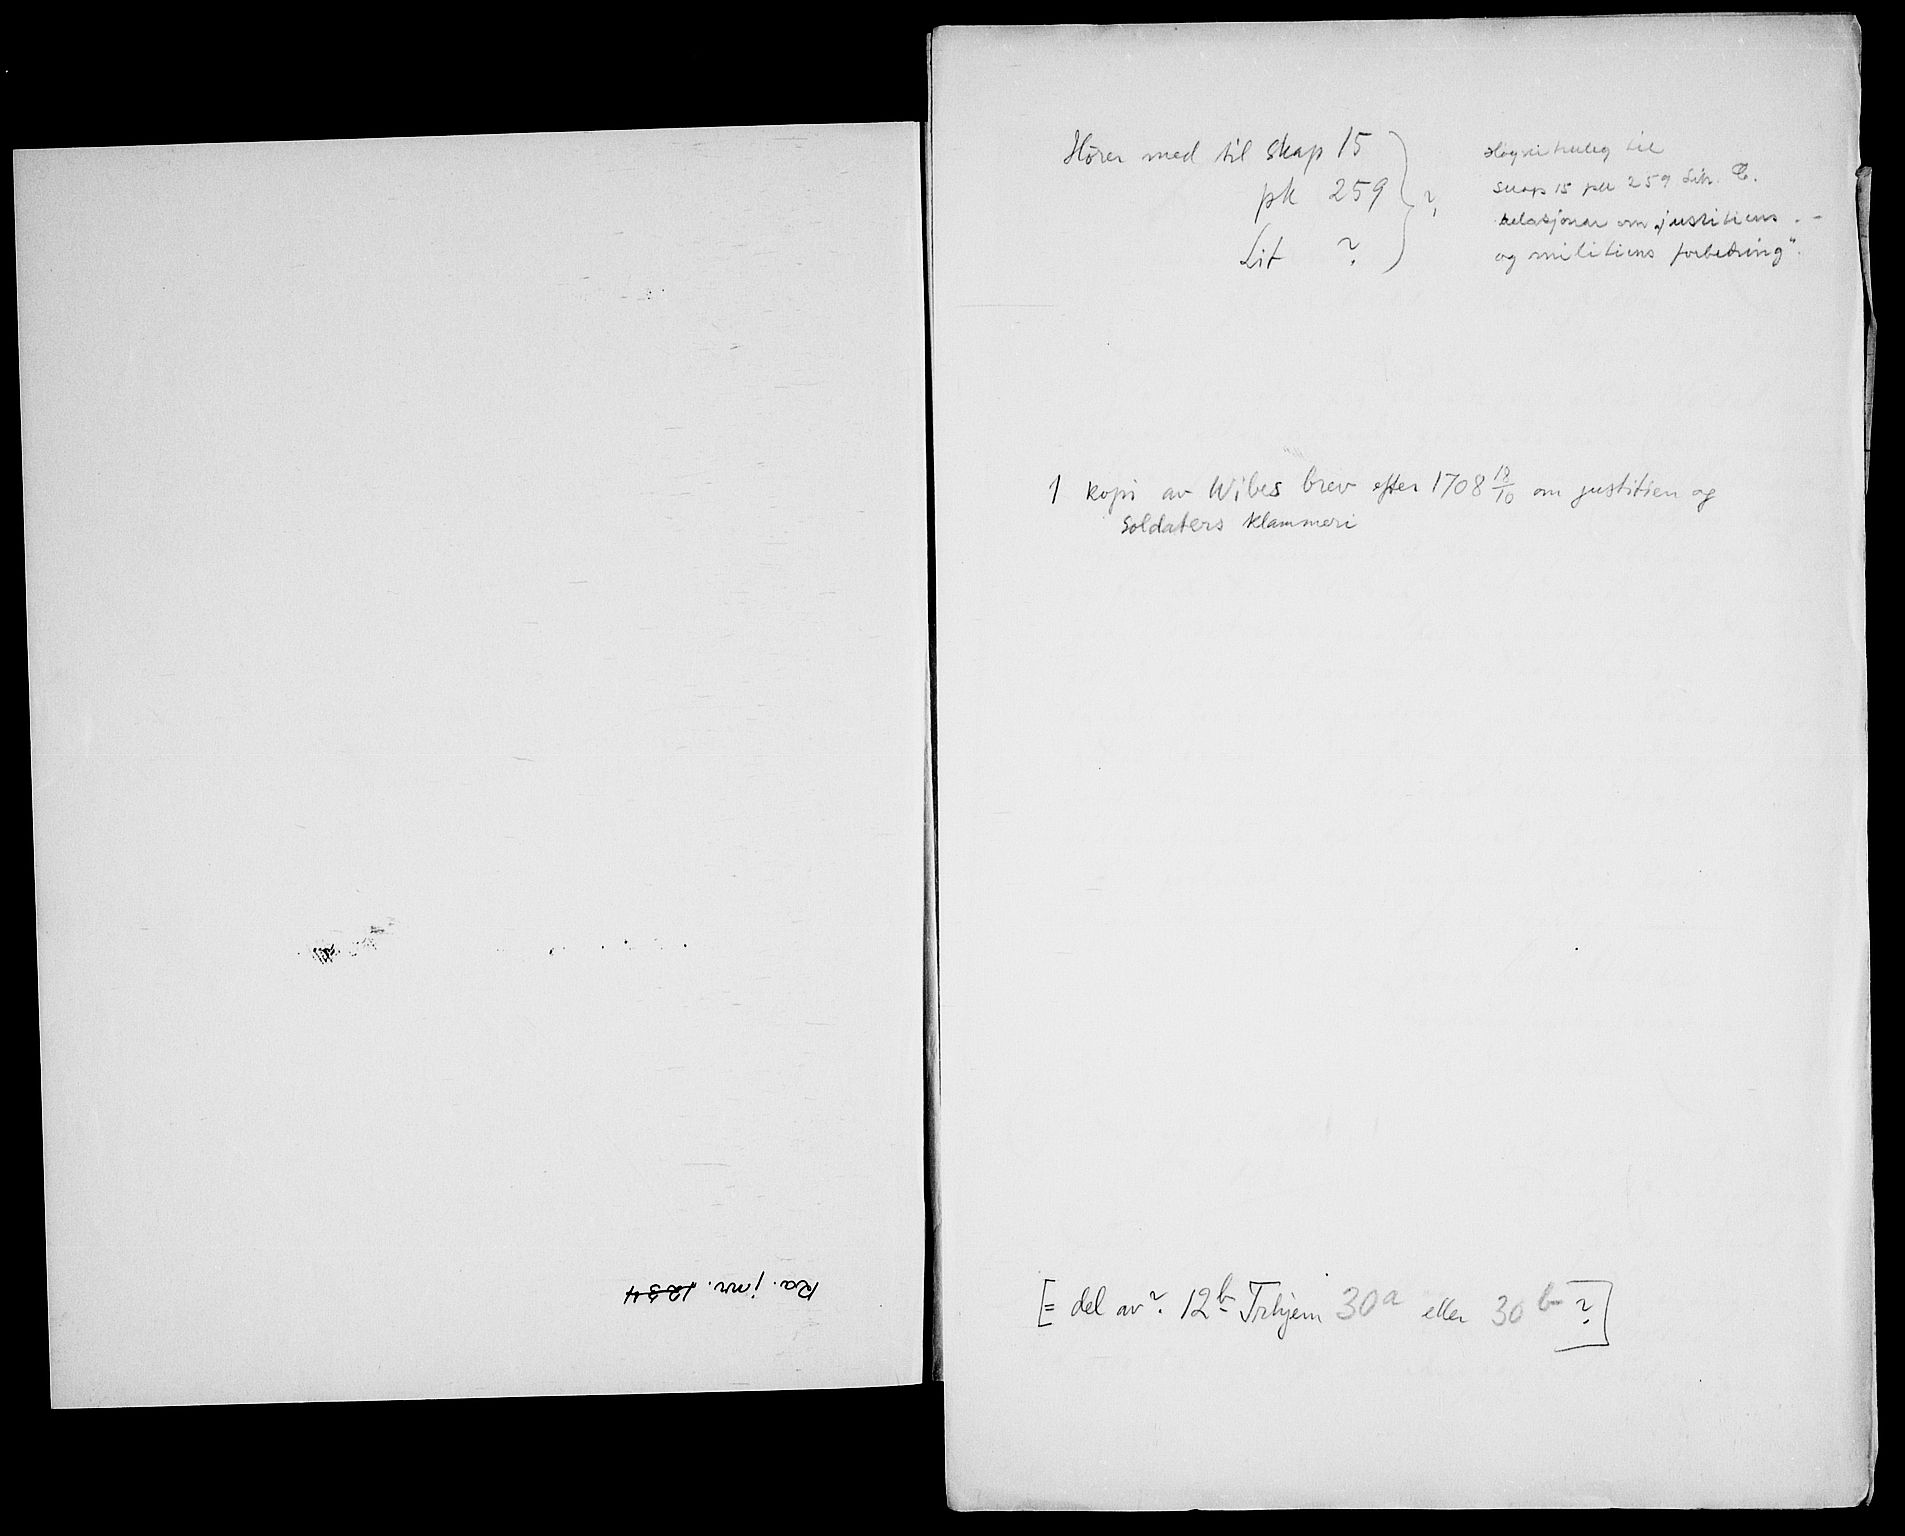 Ra. jnr. 1234
Hører med til skap 15
pk 259 ?
Lit ?
Høgst truleg til
skap 15 pk 259 Litr. C.
relasjonar om „justitiens -
og militiens forbedring“.
1 kopi av Wibes brev efter 1708 18/10 om justitien og
soldaters klammeri
[= del av? 12b Trhjem 30a eller 30b ?]